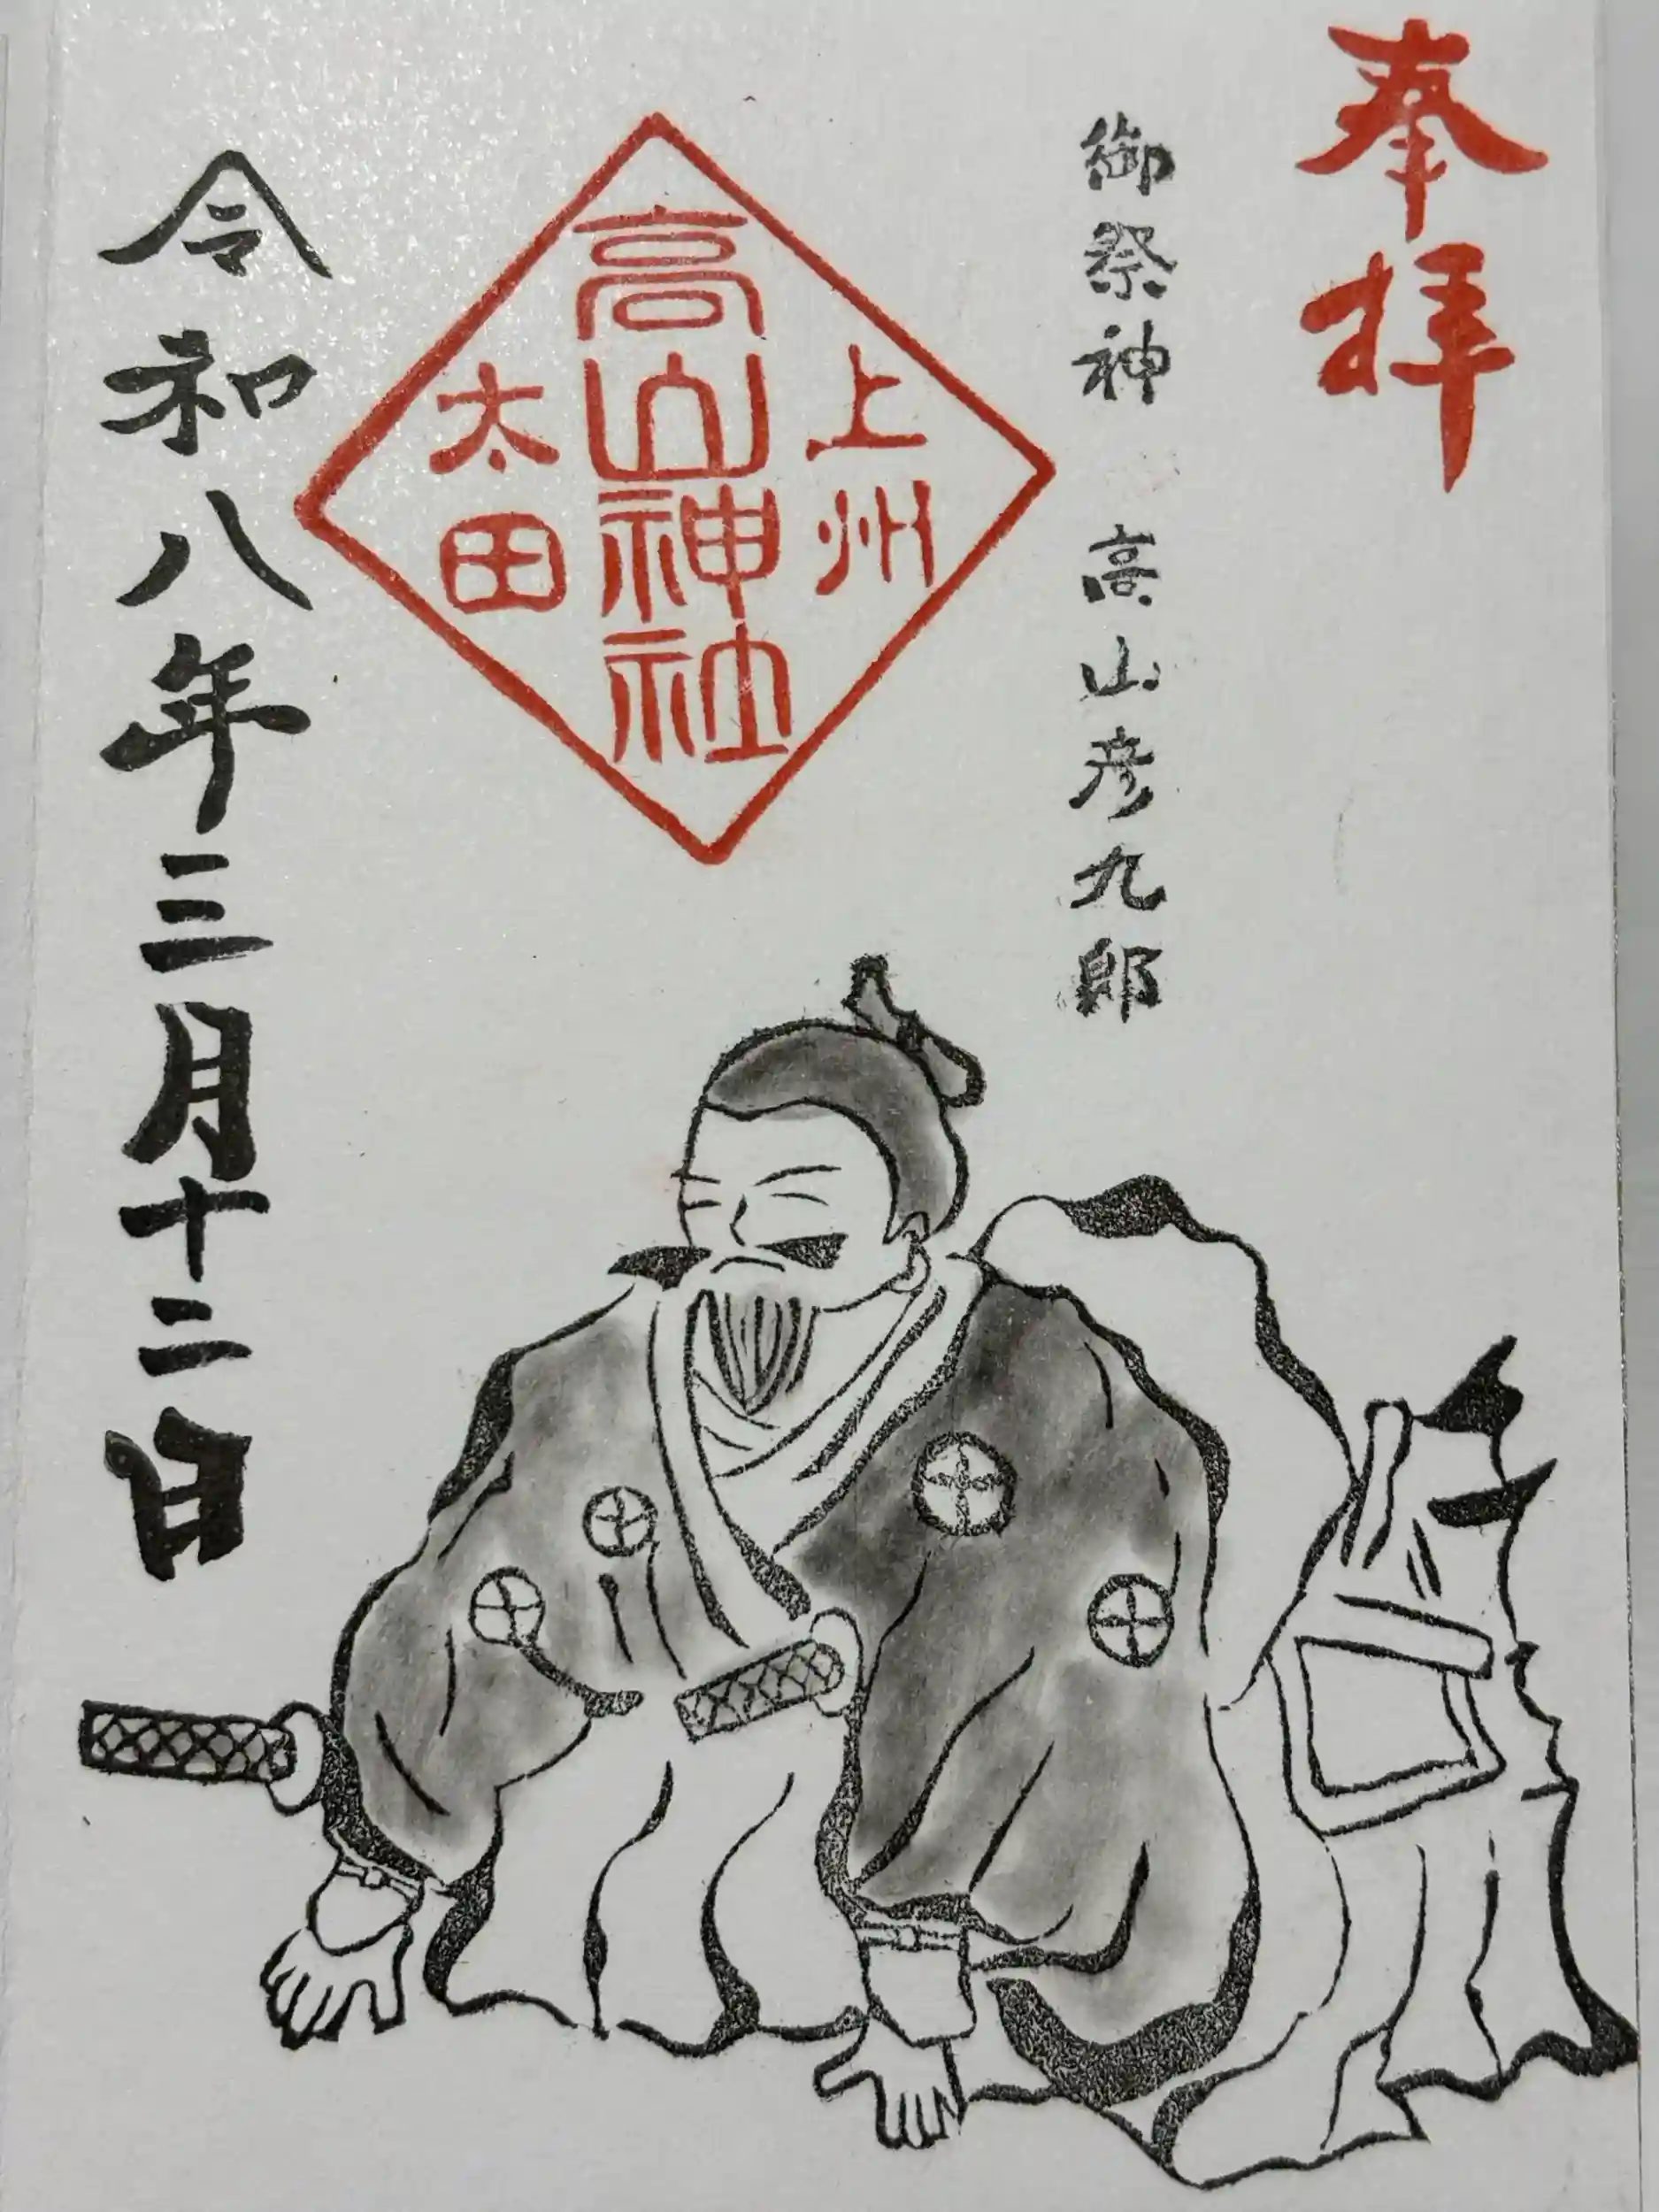 奉拝
御祭神 高山彦九郎
上州
高山神社
太田
令和八年三月十二日